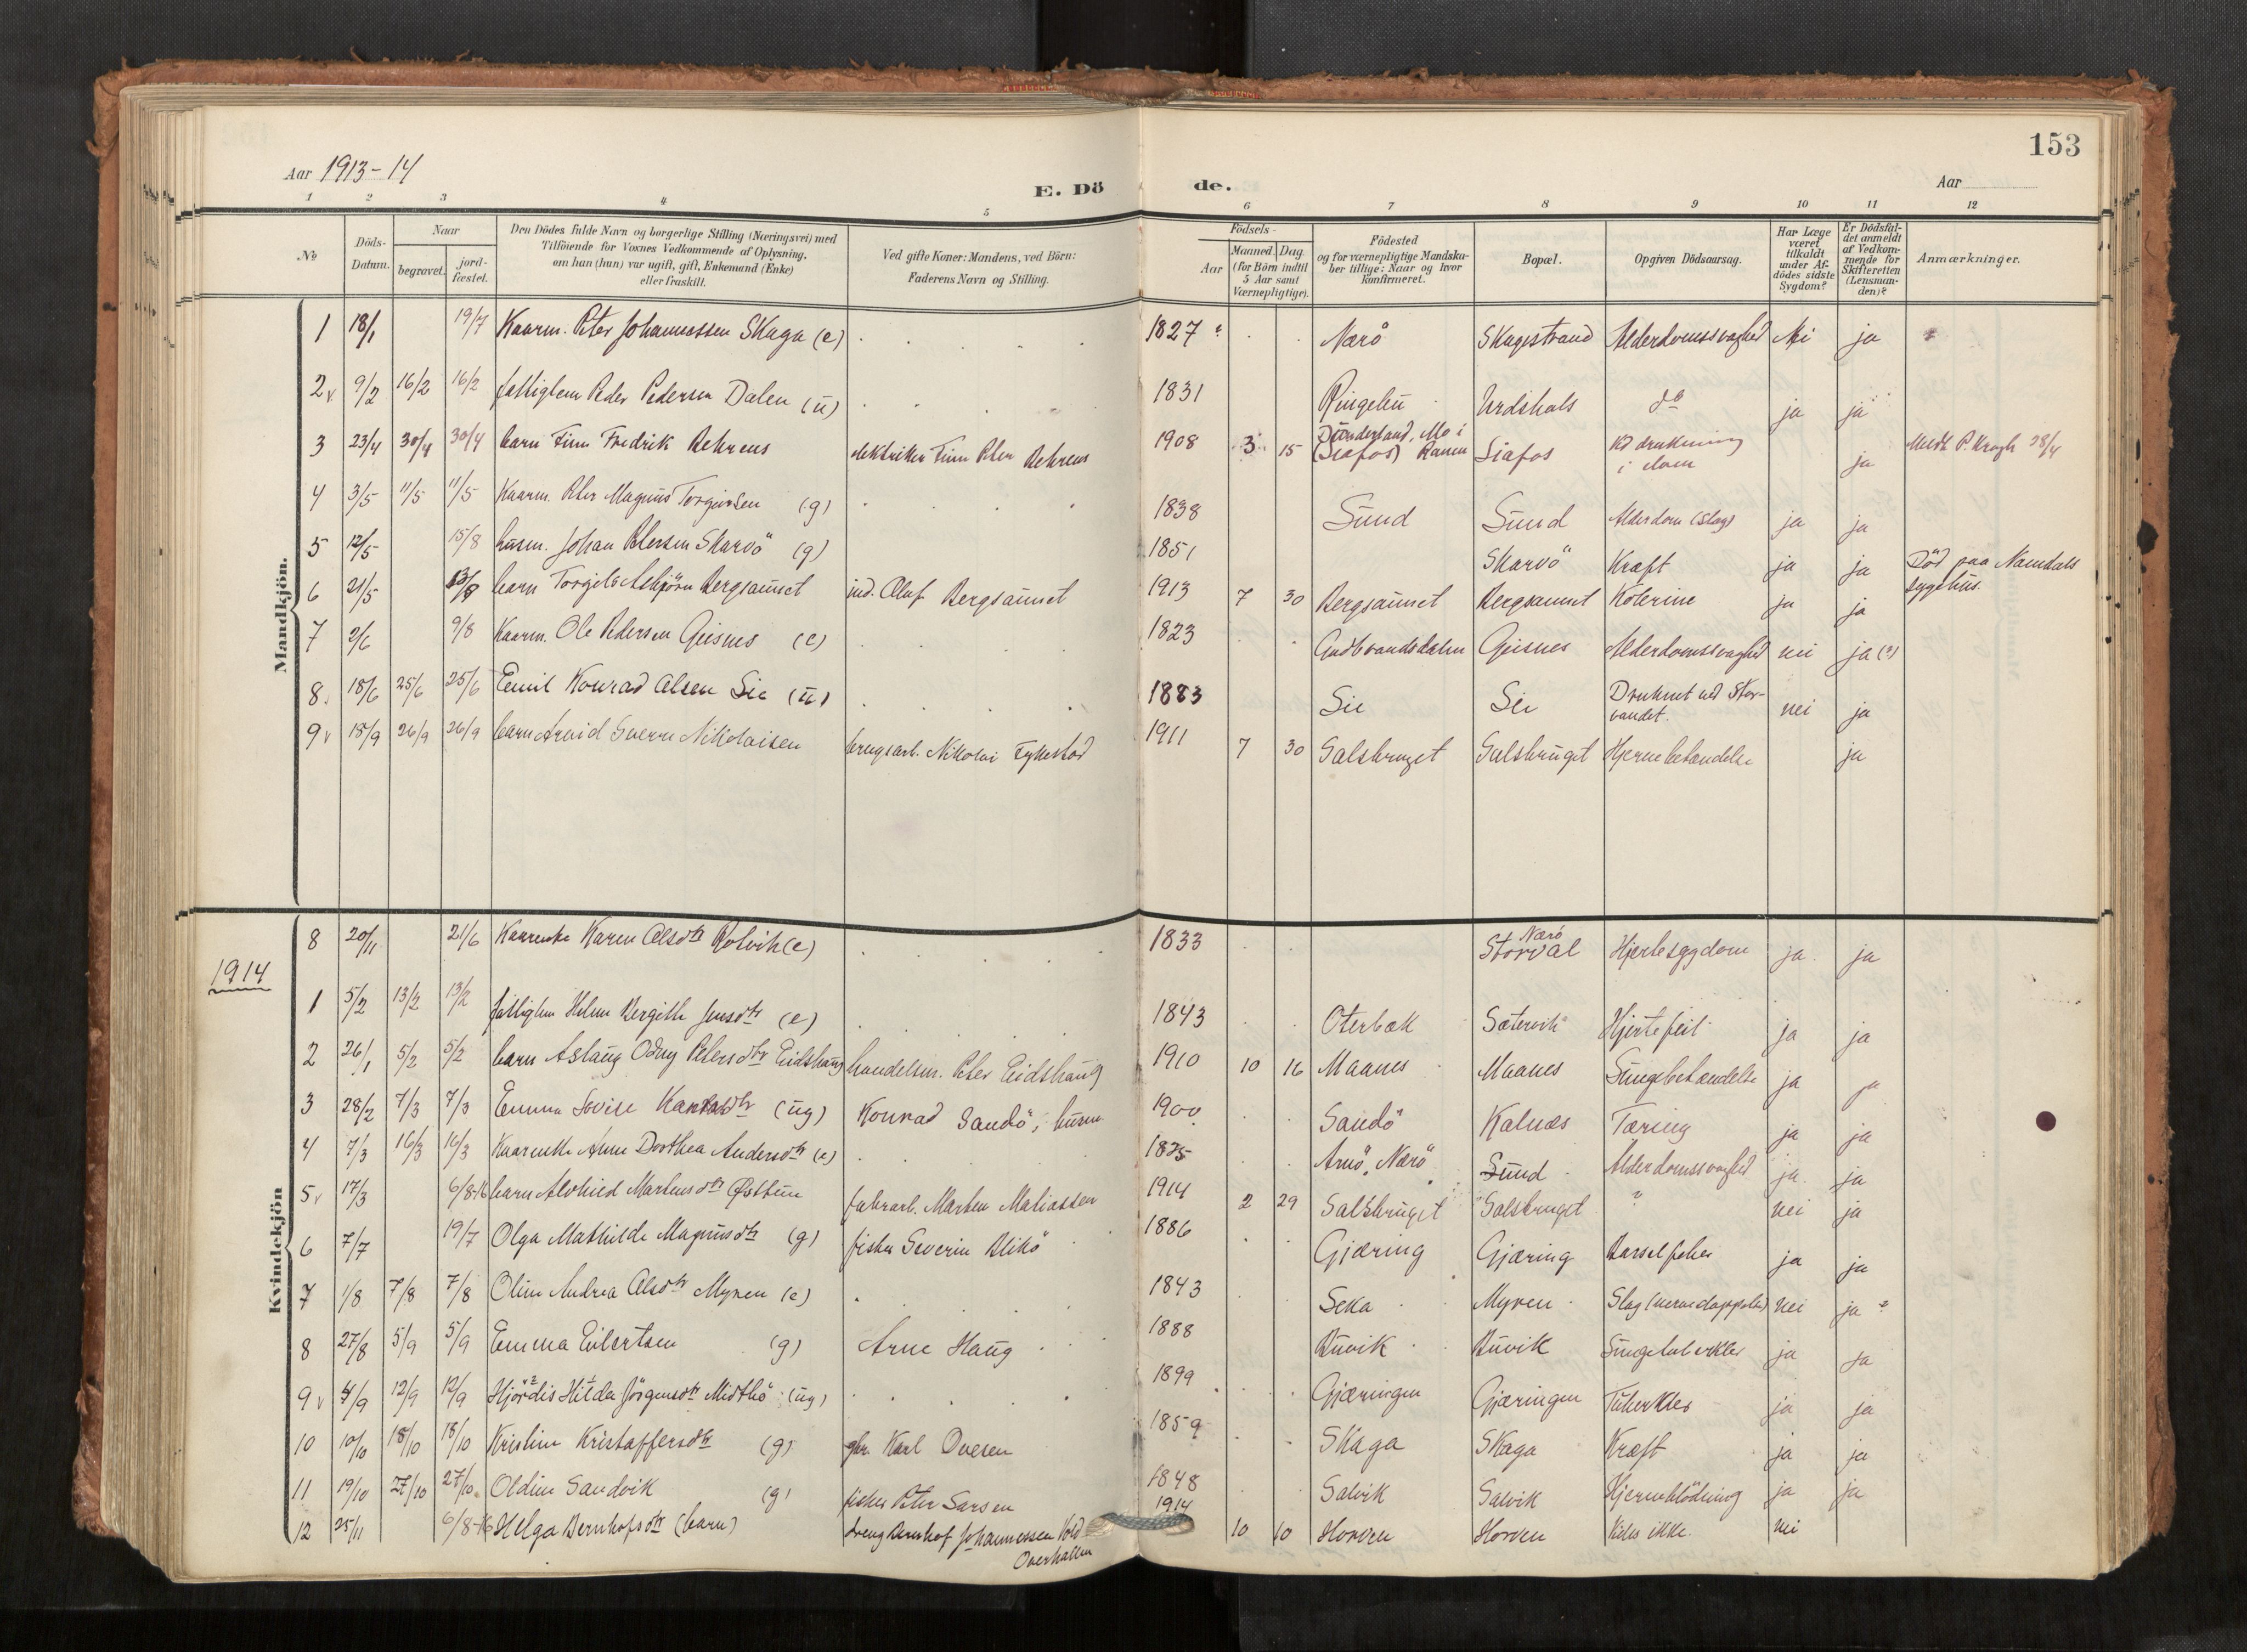 153
Aar 1913-14
E. Dö de.
Aar
1 2 3 4 5 6 7 8 9 10 11 12
No
Döds-Datum.
Naar begravet. jord-fæstet.
Den Dödes fulde Navn og borgerlige Stilling (Næringsvei) med Tilföiende for Voxnes Vedkommende af Oplysning, om han (hun) var ugift, gift, Enkemand (Enke) eller fraskilt.
Ved gifte Koner: Mandens, ved Börn: Faderens Navn og Stilling.
Födsels-
Aar Maaned. Dag. (for Börn indtil 5 Aar samt Værnepligtige).
Födested og for værnepligtige Mandskaber tillige: Naar og hvor konfirmeret.
Bopæl.
Opgiven Dödsaarsag.
Har Læge været tilkaldt under Afdödes sidste Sygdom?
Er Dödsfaldet anmeldt af Vedkommende for Skifteretten (Lensmanden)?
Anmærkninger.
Mandkjön.
1 18/1 19/7 Kaarm. Peter Johannessen Skaga (e) 1827 ? Nærö Skagestrand Alderdomssvaghed Nei ja
2 v 9/2 16/2 16/2 fattiglem Peder Pedersen Dalen (u) 1831 Ringebu Urdshals do ja ja
3 23/4 30/4 30/4 barn Finn Fredrik Behrens elektriker Finn Peter Behrens 1908 3 15 Dunderland, Mo i Ranen (Siafos) Siafos drukning i elven ja Meldt P. Krogh 28/4
4 3/5 11/5 11/5 Kaarm. Peter Magnus Torgersen (g) 1838 Sund Sund Alderdom (slag) ja ja
5 12/5 15/8 husm. Johan Petersen Skarvö (g) 1851 Skarvö Kræft ja ja Död paa Namdals sygehus.
6 21/5 barn Torgils Asbjörn Bergsaunet ind. Oluf Bergsaunet 1913 7 30 Bergsaunet Bergsaunet Kolerine ja ja
7 2/6 9/8 Kaarm. Ole Pedersen Geisnes (e) 1823 Gudbrandsdalen Geisnes Alderdomssvaghed nei ja (?)
8 18/6 25/6 25/6 Emil Konrad Olsen Sie (u) 1883 Sie Sie Druknet ved Storvandet. nei ja
9 v 18/9 26/9 26/9 barn Arvid Sverre Nikolaisen brugsarb. Nikolai Fykestad 1911 7 30 Salsbruget Salsbruget Hjernebetændelse ja
Kvindekjön
8 20/11 21/6 Kaarenke Karen Olsdtr Rotvik (e) 1833 Nærö Storval Hjertesygdom ja ja
1914
1 5/2 13/2 13/2 fattiglem Helene Bergitte Jensdtr (e) 1843 Oterbæk Sætervik Hjertefeil ja ja
2 26/1 5/2 5/2 barn Aslaug Odny Petersdtr Eidshaug handelsm. Peter Eidshaug 1910 10 16 Maanes Maanes Lungebetændelse ja ja
3 28/2 7/3 7/3 Emma Lovise (ug) Konrad Sandö, husm. 1900 Sandö Kalnæs Tæring ja ja
4 7/3 16/3 16/3 Kaarenke Anne Dorthea Andersdtr (e) 1825 Arnö, Nærö Sund Alderdomssvaghed ja ja
5 v 17/3 6/8-16 barn Alvhild Martensdtr Östtun fabrarb. Marten Matiassen 1914 2 29 Salsbruget Salsbruget ? nei ja
6 7/7 19/7 Olga Mathilde Magnusdtr (g) fisker Severin Blikö 1886 Gjæring Gjæring Barselfeber ja ja
7 1/8 7/8 7/8 Oline Andrea Olsdtr Myren (e) 1843 Seka Myren Slag nei ja ?
8 27/8 5/9 5/9 Emma Eilertsen (g) Arne Haug 1888 Buvik Buvik Lungetuberkler ja ja
9 v 4/9 12/9 12/9 Hjördis Hilda Jörgensdtr Midthö (ug) 1899 Gjæringen Gjæringen Tuberkler ja ja
10 10/10 18/10 18/10 Kristine Kristoffersdtr (g) gbr. Karl Ovesen 1859 Skaga Skaga Kræft ja ja
11 19/10 27/10 27/10 Oldine Sandvik (g) fisker Peter Larsen 1848 Salvik Salvik Hjerneblödning ja ja
12 25/11 6/8-16 Helga Bernhofsdtr (barn) dreng Bernhof Johannessen Vold Overhallen 1914 10 10 Horven Horven Vides ikke. nei